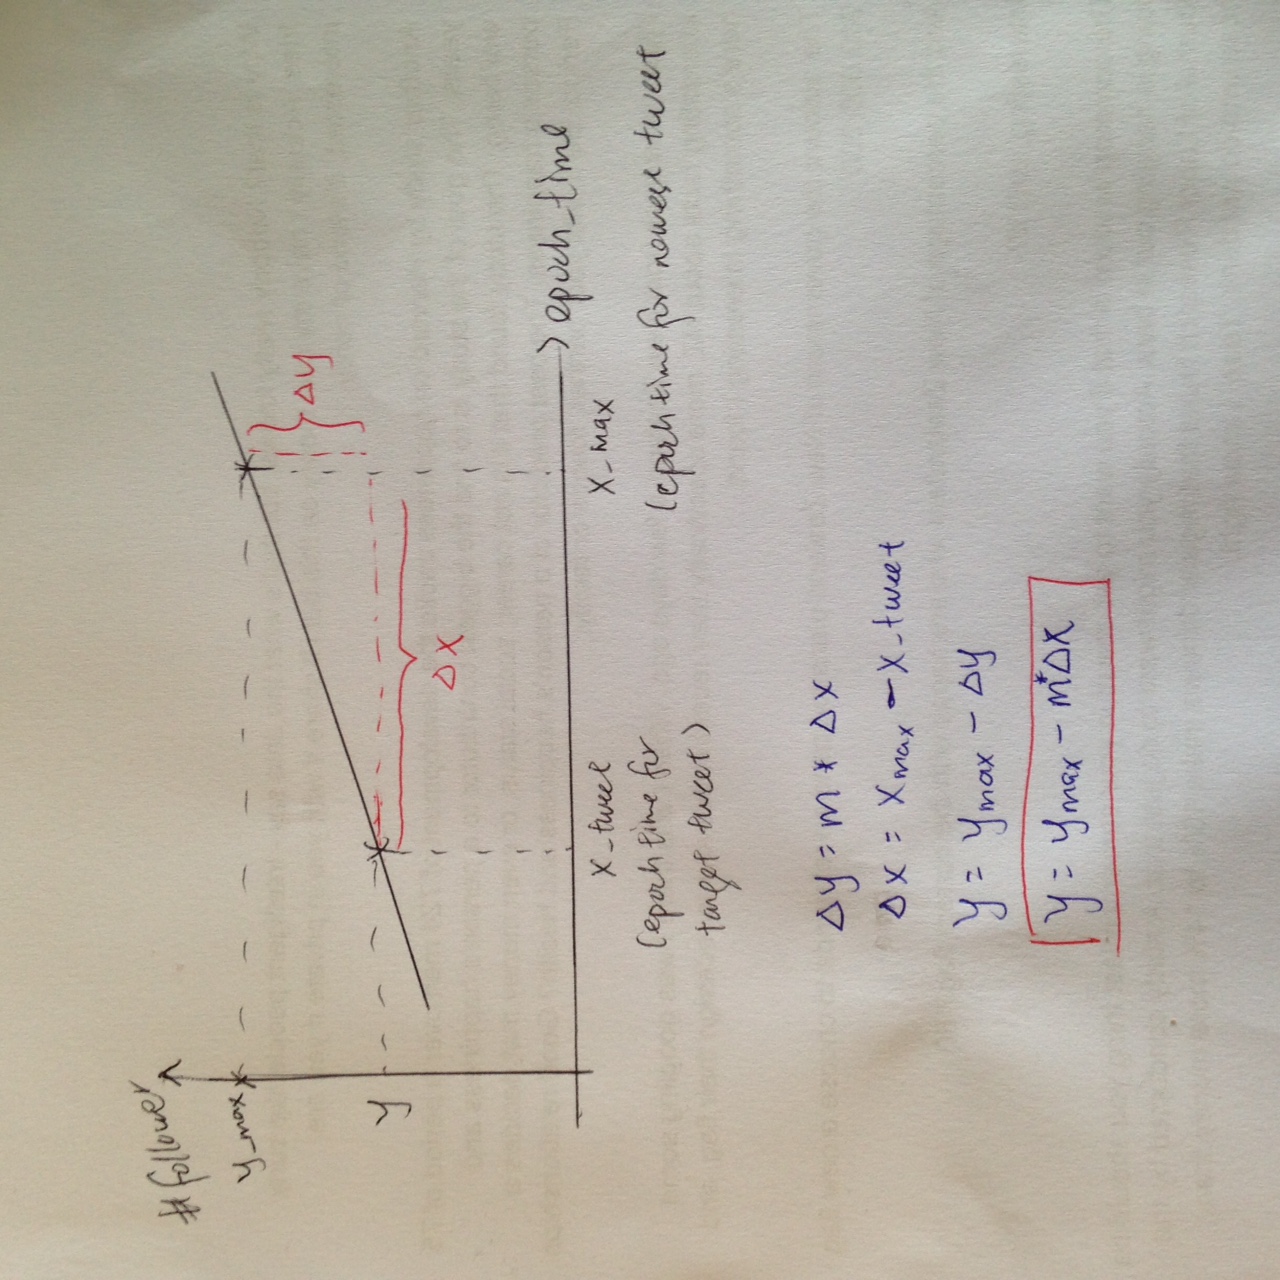 #follower
y_max
Δy
y
Δx
epoch_time
x_tweet
x_max
(epoch time for
target tweet)
(epoch time for nowest tweet
Δy = m * Δx
Δx = xmax - x_tweet
y = ymax - Δy
y = ymax - m*Δx